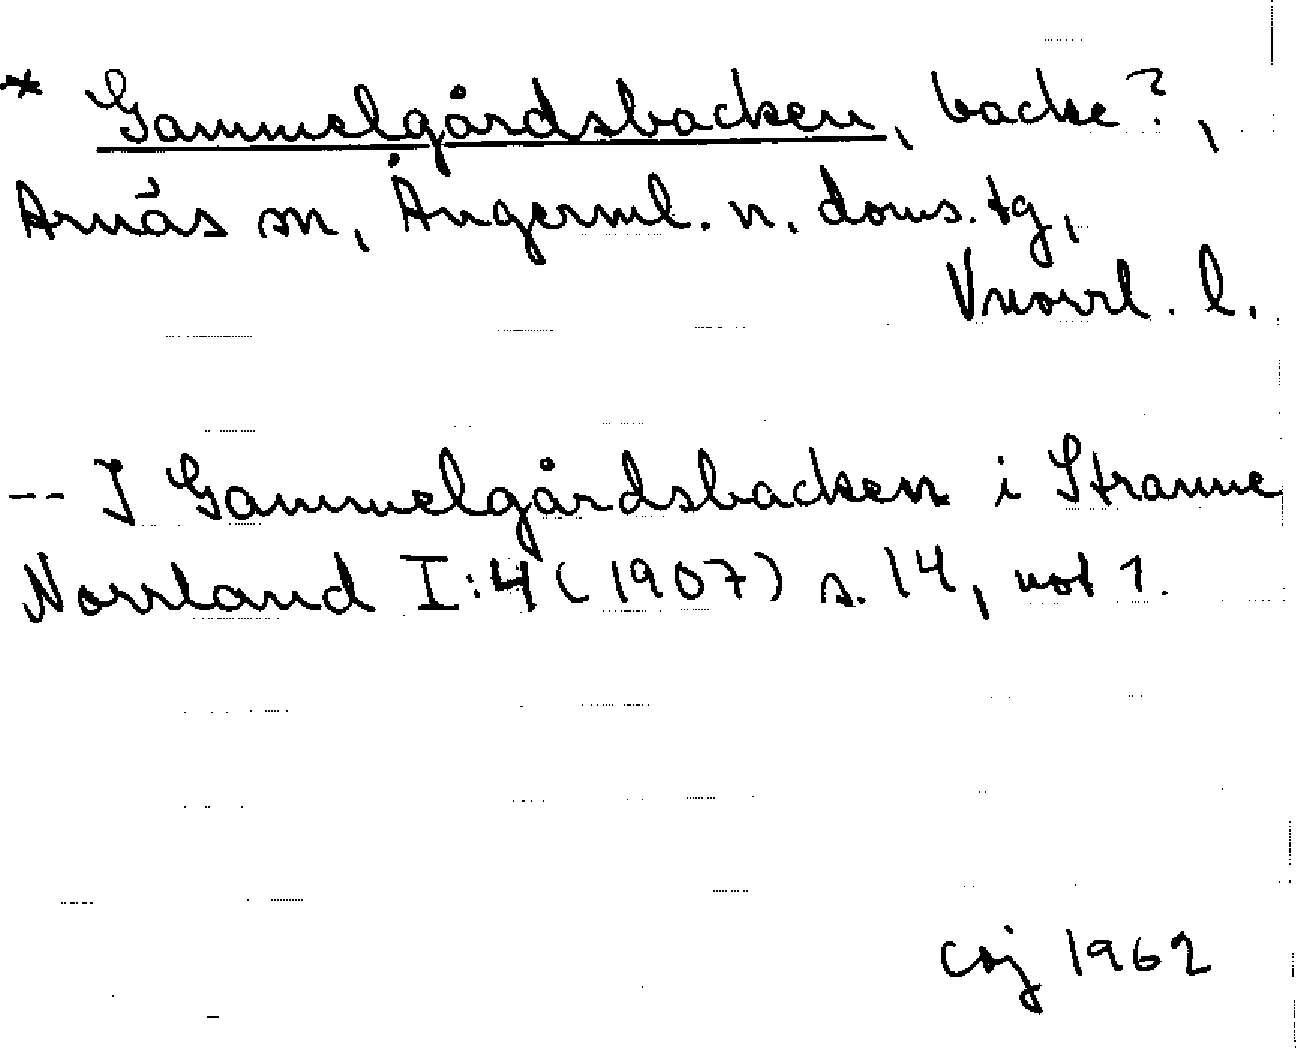 * Gammelgårdsbacken, backe?,
Arnäs sn, Ångerml. n. doms. tg,
Vnorrl. l.
-- I Gammelgårdsbacken i Stranne
Norrland I:4 (1907) s. 14, not 1.
coj 1962